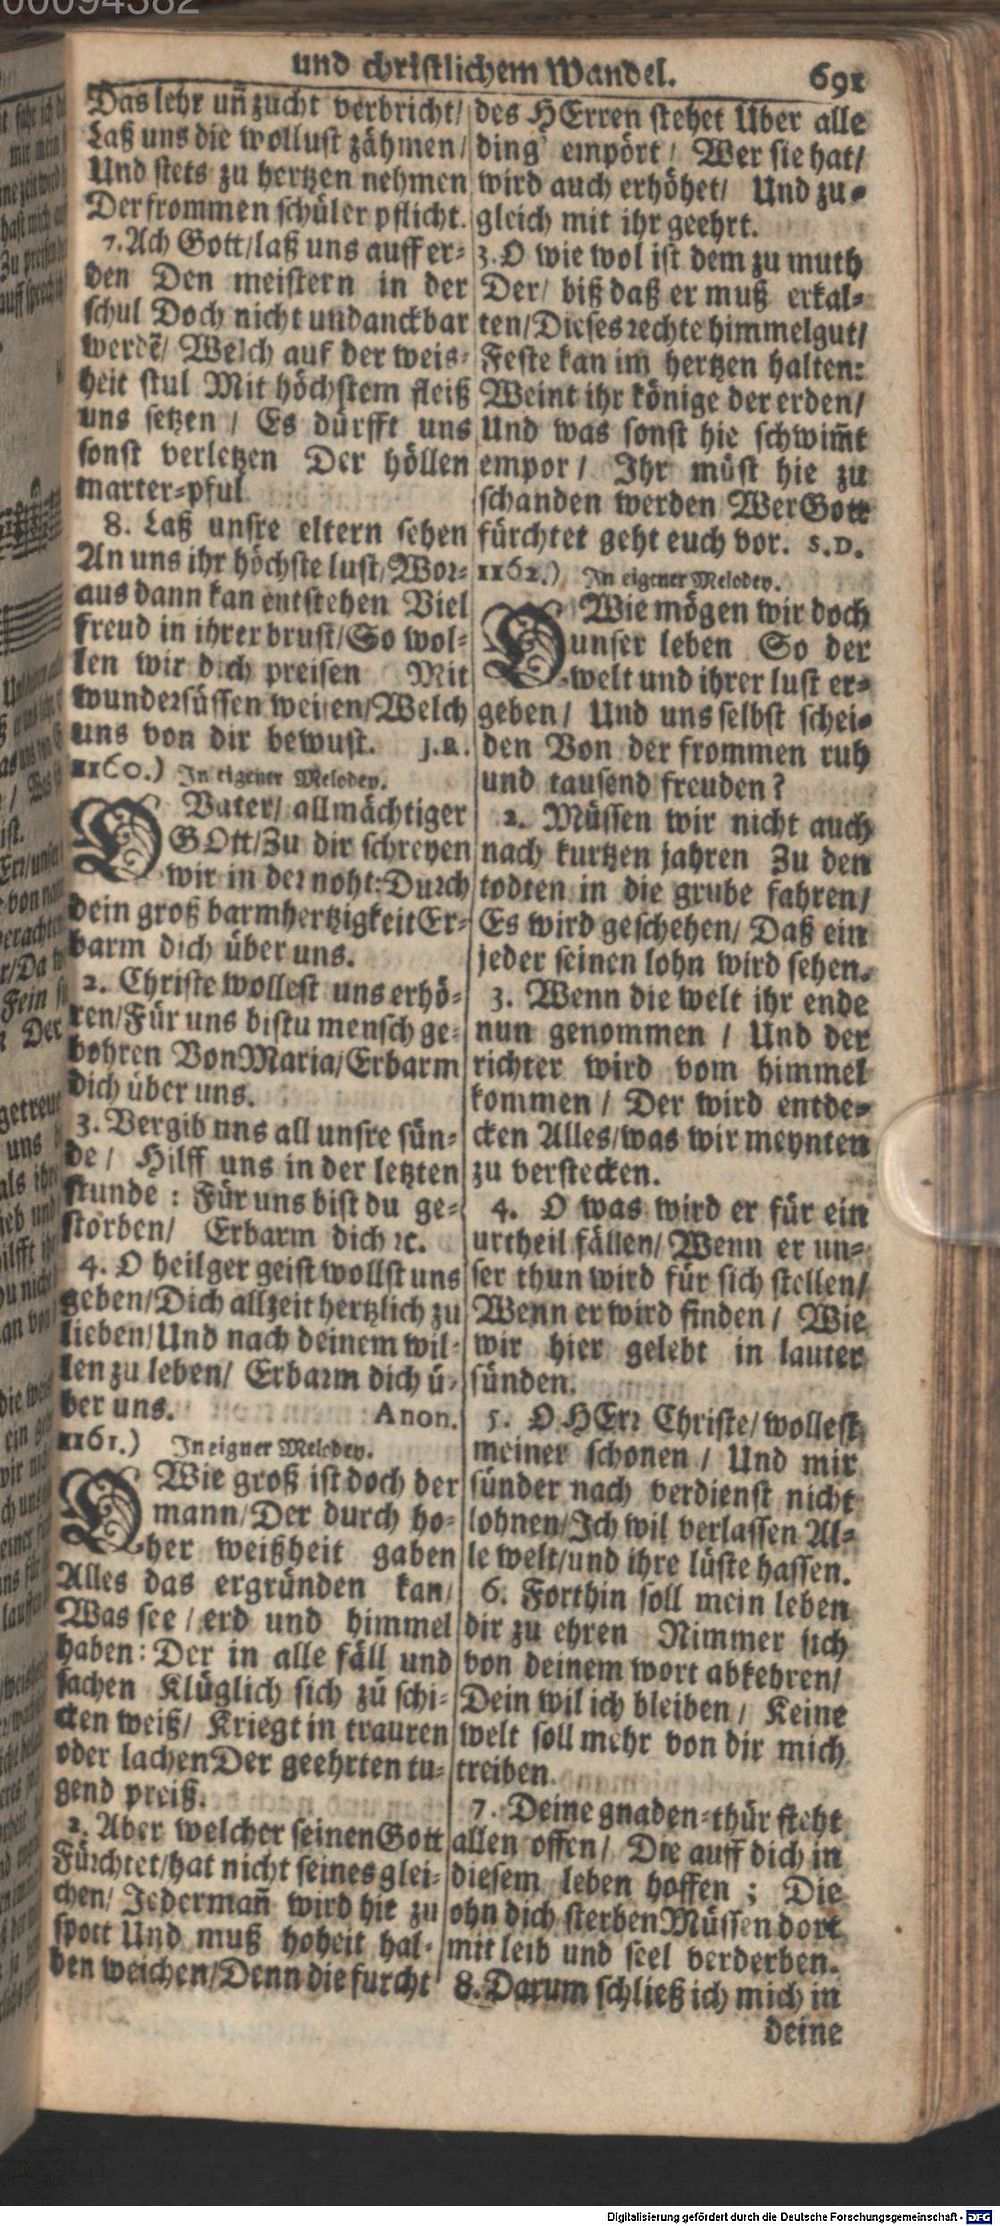 und christlichem Wandel. 691
Das lehr uñ zucht verbricht/
Laß uns die wollust zähmen/
Und stets zu hertzen nehmen
Der frommen schüler pflicht.
7. Ach Gott/laß uns auff er-
den Den meistern in der
schul Doch nicht undanckbar
werdē/ Welch auf der weis-
heit stul Mit höchstem fleiß
uns setzen / Es dürfft uns
sonst verletzen Der höllen
marter-pful
8. Laß unsre eltern sehen
An uns ihr höchste lust/Wor-
aus dann kan entstehen Viel
freud in ihrer brust/So wol-
len wir dich preisen Mit
wundersüssen weisen/Welch
uns von dir bewust. J.R.
1160.) In eigener Melodey.
O Vater/ allmächtiger
GOtt/Zu dir schreyen
wir in der noht: Durch
dein groß barmhertzigkeit Er-
barm dich über uns.
2. Christe wollest uns erhö-
ren/Für uns bistu mensch ge-
bohren Von Maria/Erbarm
dich über uns.
3. Vergib uns all unsre sün-
de / Hilff uns in der letzten
stunde : Für uns bist du ge-
storben/ Erbarm dich ꝛc.
4. O heilger geist wollst uns
geben/Dich allzeit hertzlich zu
lieben/Und nach deinem wil-
len zu leben/ Erbarm dich ü-
ber uns. Anon.
1161.) In eigner Melodey.
O Wie groß ist doch der
mann/Der durch ho-
her weißheit gaben
Alles das ergründen kan/
Was see / erd und himmel
haben: Der in alle fäll und
sachen Klüglich sich zu schi-
cken weiß/ Kriegt in trauren
oder lachen Der geehrten tu-
gend preiß.
2. Aber welcher seinen Gott
Fürchtet/hat nicht seines glei-
chen/ Jedermañ wird hie zu
spott Und muß hoheit hal-
ben weichen/Denn die furcht
des HErren stehet Uber alle
ding empört / Wer sie hat/
wird auch erhöhet/ Und zu-
gleich mit ihr geehrt.
3. O wie wol ist dem zu muth
Der/ biß daß er muß erkal-
ten/Dieses rechte himmelgut/
Feste kan im hertzen halten:
Weint ihr könige der erden/
Und was sonst hie schwim̄t
empor / Ihr müst hie zu
schanden werden Wer Gott
fürchtet geht euch vor. S.D.
1162.) In eigener Melodey.
O Wie mögen wir doch
unser leben So der
welt und ihrer lust er-
geben/ Und uns selbst schei-
den Von der frommen ruh
und tausend freuden?
2. Müssen wir nicht auch
nach kurtzen jahren Zu den
todten in die grube fahren/
Es wird geschehen/ Daß ein
jeder seinen lohn wird sehen.
3. Wenn die welt ihr ende
nun genommen / Und der
richter wird vom himmel
kommen / Der wird entde-
cken Alles/was wir meynten
zu verstecken.
4. O was wird er für ein
urtheil fällen/ Wenn er un-
ser thun wird für sich stellen/
Wenn er wird finden / Wie
wir hier gelebt in lauter
sünden.
5. O HErr Christe/ wollest
meiner schonen / Und mir
sünder nach verdienst nicht
lohnen/Ich wil verlassen Al-
le welt/und ihre lüste hassen.
6. Forthin soll mein leben
dir zu ehren Nimmer sich
von deinem wort abkehren/
Dein wil ich bleiben / Keine
welt soll mehr von dir mich
treiben.
7. Deine gnaden-thür steht
allen offen/ Die auff dich in
diesem leben hoffen ; Die
ohn dich sterben Müssen dort
mit leib und seel verderben.
8. Darum schließ ich mich in
deine
Digitalisierung gefördert durch die Deutsche Forschungsgemeinschaft - DFG